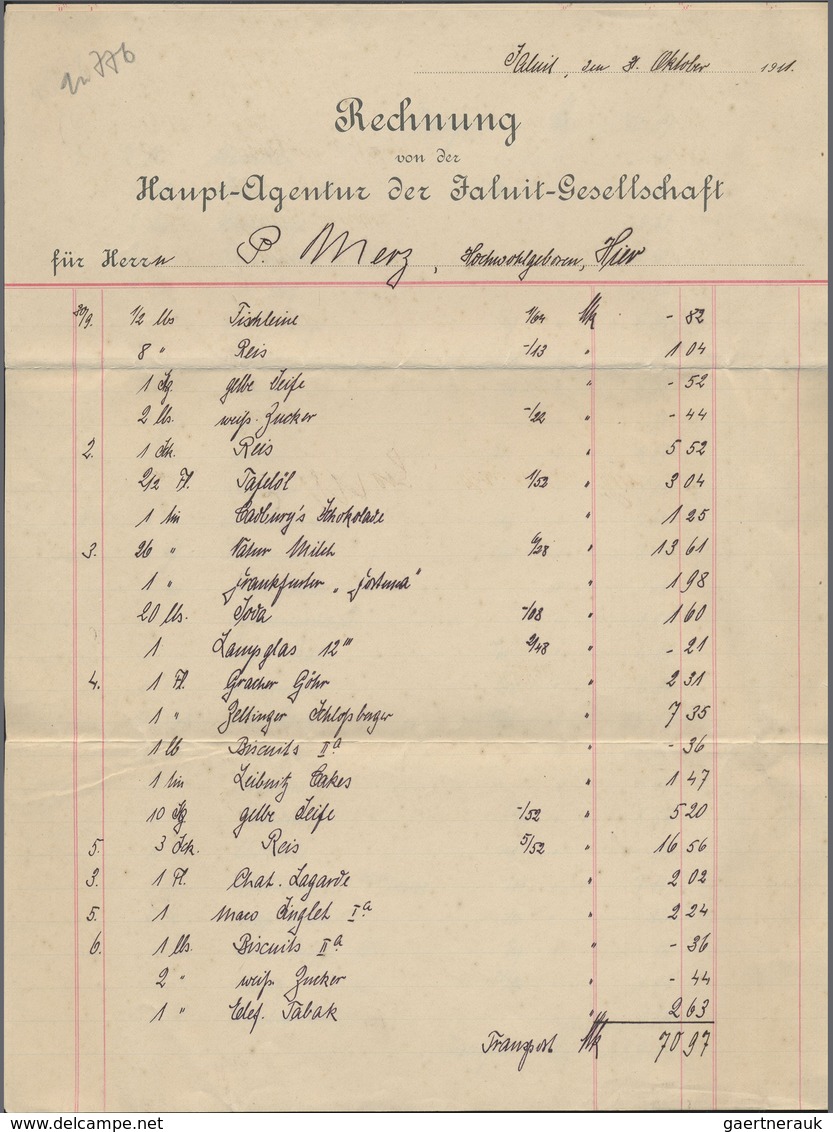 No 776
Jaluit, den 31. Oktober 1911.
Rechnung
von der
Haupt-Agentur der Jaluit-Gesellschaft
für Herrn P. Merz, Hochwohlgeboren, Hier
30/9. 1/2 lbs Tischleine 1/64 Mk - 82
8 " Reis -/13 " 1 04
1 Kg gelbe Seife " - 52
2 lbs. weiß. Zucker -/22 " - 44
2. 1 Sck. Reis " 5 52
2/2 Fl. Tafelöl 1/52 " 3 04
1 tin Cadbury's Schokolade " 1 25
3. 26 " Natur Milch " 13 61
1 " Frankfurter "Fortuna" " 1 98
20 lbs. Soda -/08 " 1 60
1 Lampglas 12''' 2/48 " - 21
4. 1 Fl. Gracher Göhr " 2 31
1 " Zeltinger Schloßberger " 7 35
1 lb Biscuits IIa " - 36
1 tin Leibnitz Cakes " 1 47
10 Kg gelbe Seife -/52 " 5 20
5. 3 Sck. Reis 5/52 " 16 56
3. 1 Fl. Chat. Lagarde " 2 02
5. 1 Maco Singlet Ia " 2 24
6. 1 lbs. Biscuits IIa " - 36
2 " weiß. Zucker " - 44
1 " Elef. Tabak " 2 63
Transport Mk 70 97
gaertnerauk